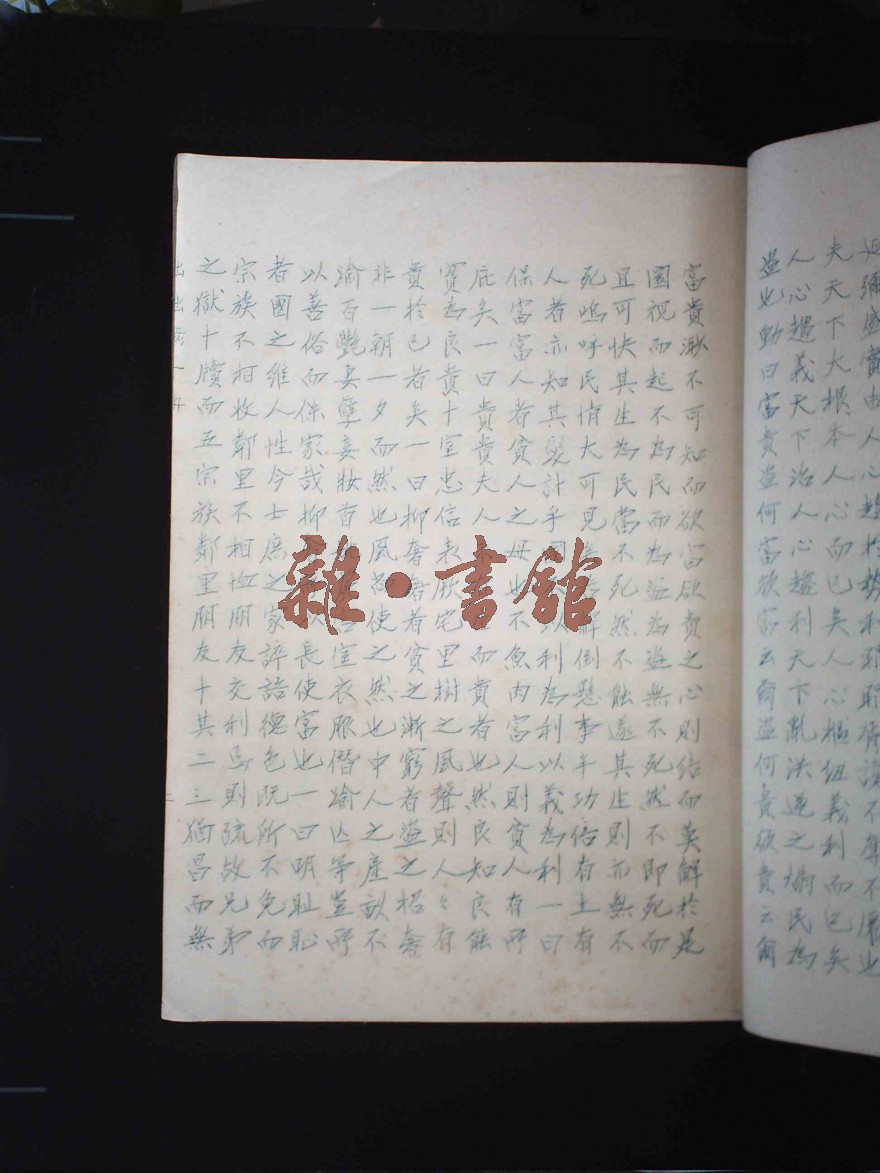 夫天下大根本人心而已矣人心樞紐義利而已矣
人心趨義天下治人心趨利天下亂洪逆之煽民為
盜也動曰富貴盜何富欲富云爾盜何貴欲貴云爾
富貴渺不可知而欲富欲貴之心則結而莫解於是
圜視而起不為民而為盜為盜無不死然不即死而
且可快其生為民當不死然不能遂其生則亦無不
死嗚呼民情大可見解倒懸事半功倍有土有
人者亦知其髮計乎國以利為利以義為利一曰
保富富人者貧人之母也不魚肉富人則貧人有所
庇矣一曰貴貴夫人而貴者也然良知良能
實為良貴十室忠信表厥宅里樹之風聲則人々有
貴於己者矣一曰抑奢奢者貧之漸窮者盜之招奢
非一朝一夕而然也風尚使之然也中人之產畝不
渝百艷妻孽妾妝首室衣服僭渝亾等豈所
以善俗而保家哉抑以長使富也一曰明恥恥
者國之維人性今士庶之家誶語德色既所不免而
宗族不相收鄰里不相恤朋友交利焉則疏故兄弟
之獄十牘而五宗族鄰里朋友十其二三猶昌而無
雜·書館